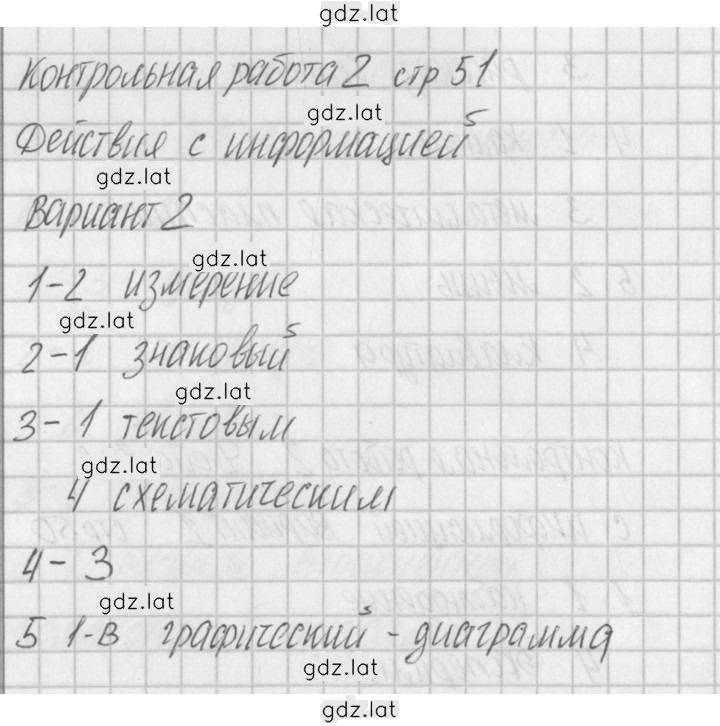 gdz.lat
Контрольная работа 2 стр 51
gdz.lat
Действия с информацией
gdz.lat
Вариант 2
gdz.lat
1-2 измерение
gdz.lat
2-1 знаковый
gdz.lat
3-1 текстовым
gdz.lat
4 схематическим
4-3
gdz.lat
5 1-В графический - диаграмма
gdz.lat
gdz.lat